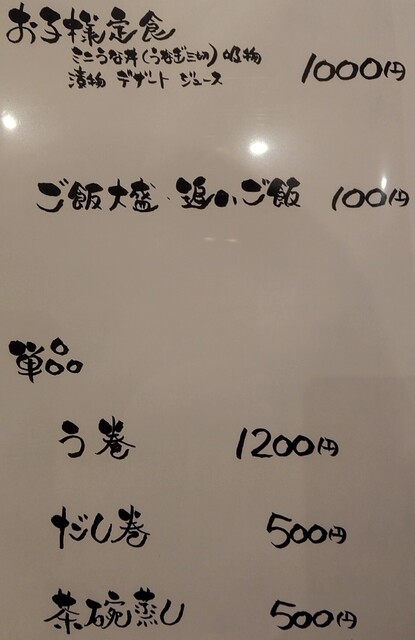 お子様定食
ミニうな丼（うなぎ三切）吸物
漬物 デザート ジュース 1000円
ご飯大盛・追いご飯 100円
単品
う巻 1200円
だし巻 500円
茶碗蒸し 500円